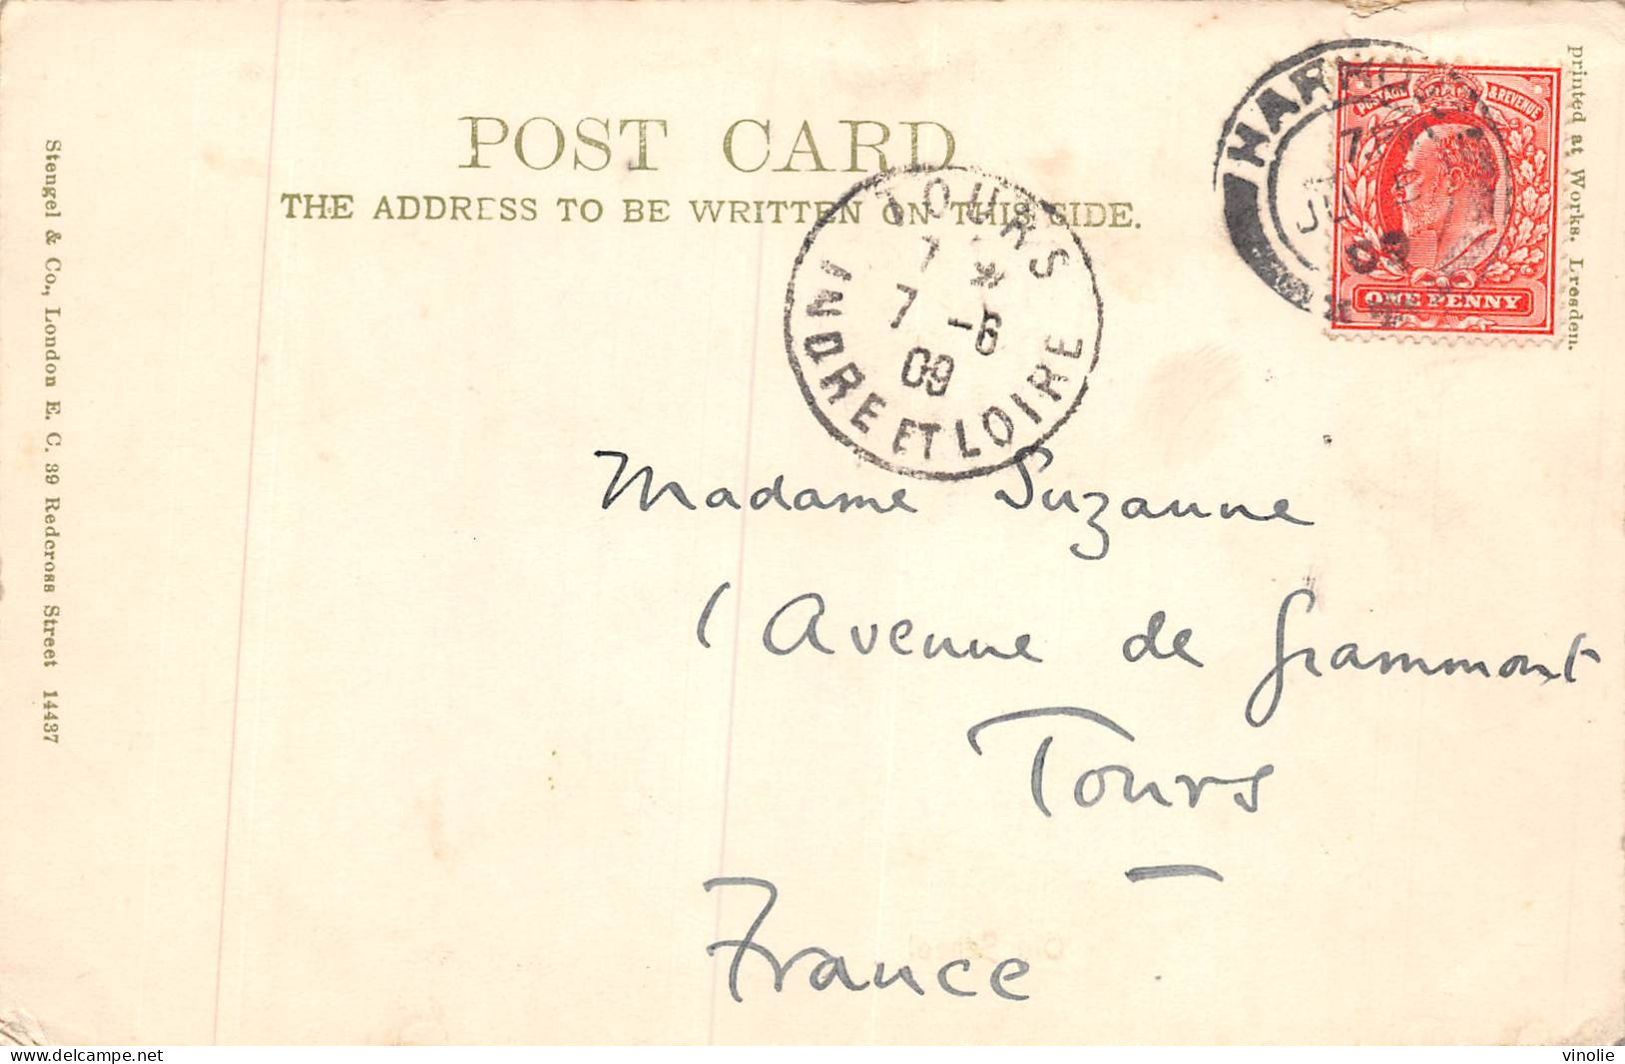 POST CARD
THE ADDRESS TO BE WRITTEN ON THIS SIDE.
Stengel & Co., London E. C. 39 Redcross Street 14437
printed at Works. Lresden.
POSTAGE & REVENUE
ONE PENNY
HARRO
JU 5
09
TOURS
7 *
7 -6
09
INDRE ET LOIRE
Madame Suzanne
1 Avenue de Grammont
Tours
France
delcampe.net
vinolie